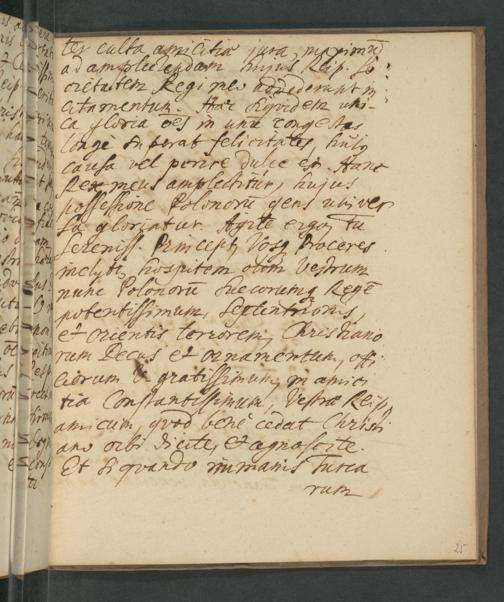 ter culta amicitiæ jura, maximũ
ad amplectendam hujus Reip. So-
cietatem Regi meo addiderunt in
citamentum. Hæc siquidem uni-
ca gloria oẽs in unũ congestas
longe superat felicitates, hujq
causa vel perire dulce est. Hanc
Rex meus amplectitur, hujus
possessione Polonorũ gens univer
sa gloriatur. Agite ergo, Tu
Sereniss. Princeps, Vosq Proceres
inclyti, hospitem olim Vestrum
nunc Polonorũ Suecorumq Regẽ
potentissimum, Septentrionis,
et Orientis terrorem, Christiano
rum Decus et ornamentum, offi
ciorum gratissimum, in amici
tia Constantissimum, Vestræ Reip.
amicum, quod bene cedat Christi
ano orbi dicite, et agnoscite.
Et si quando immanis Turca
rum
25